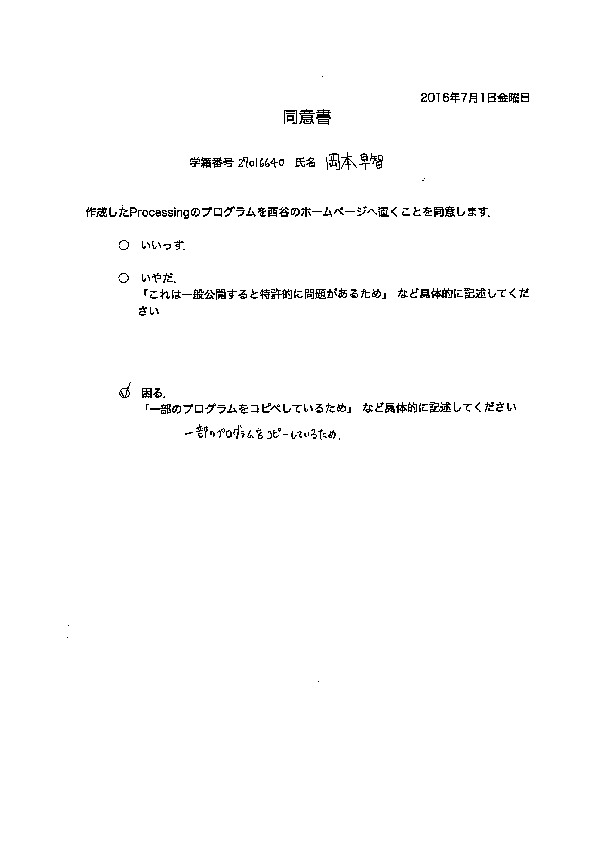 2016年7月1日金曜日
同意書
学籍番号 27016640 氏名 岡本早智
作成したProcessingのプログラムを西谷のホームページへ置くことを同意します.
○ いいっす.
○ いやだ.
「これは一般公開すると特許的に問題があるため」 など具体的に記述してくだ
さい
○ 困る.
「一部のプログラムをコピペしているため」 など具体的に記述してください
一部のプログラムをコピーしているため.